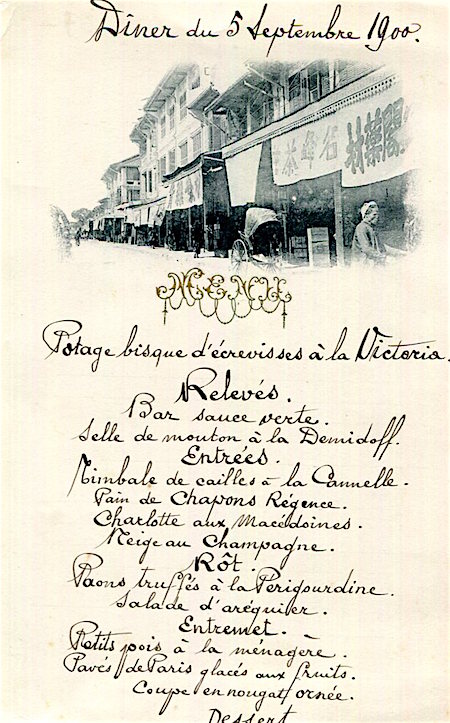 Dîner du 5 Septembre 1900.
茶峰石
林藥閣
MENU
Potage bisque d'écrevisses à la Victoria.
Relevés.
Bar sauce verte.
Selle de mouton à la Demidoff.
Entrées.
Timbale de cailles à la Cannelle.
Pain de Chapons Régence.
Charlotte aux Macédoines.
Neige au Champagne.
Rôt.
Paons truffés à la Périgourdine.
Salade d'aréquier.
Entremet.
Petits pois à la ménagère.
Pavés de Paris glacés aux fruits.
Coupe en nougat ornée.
Dessert